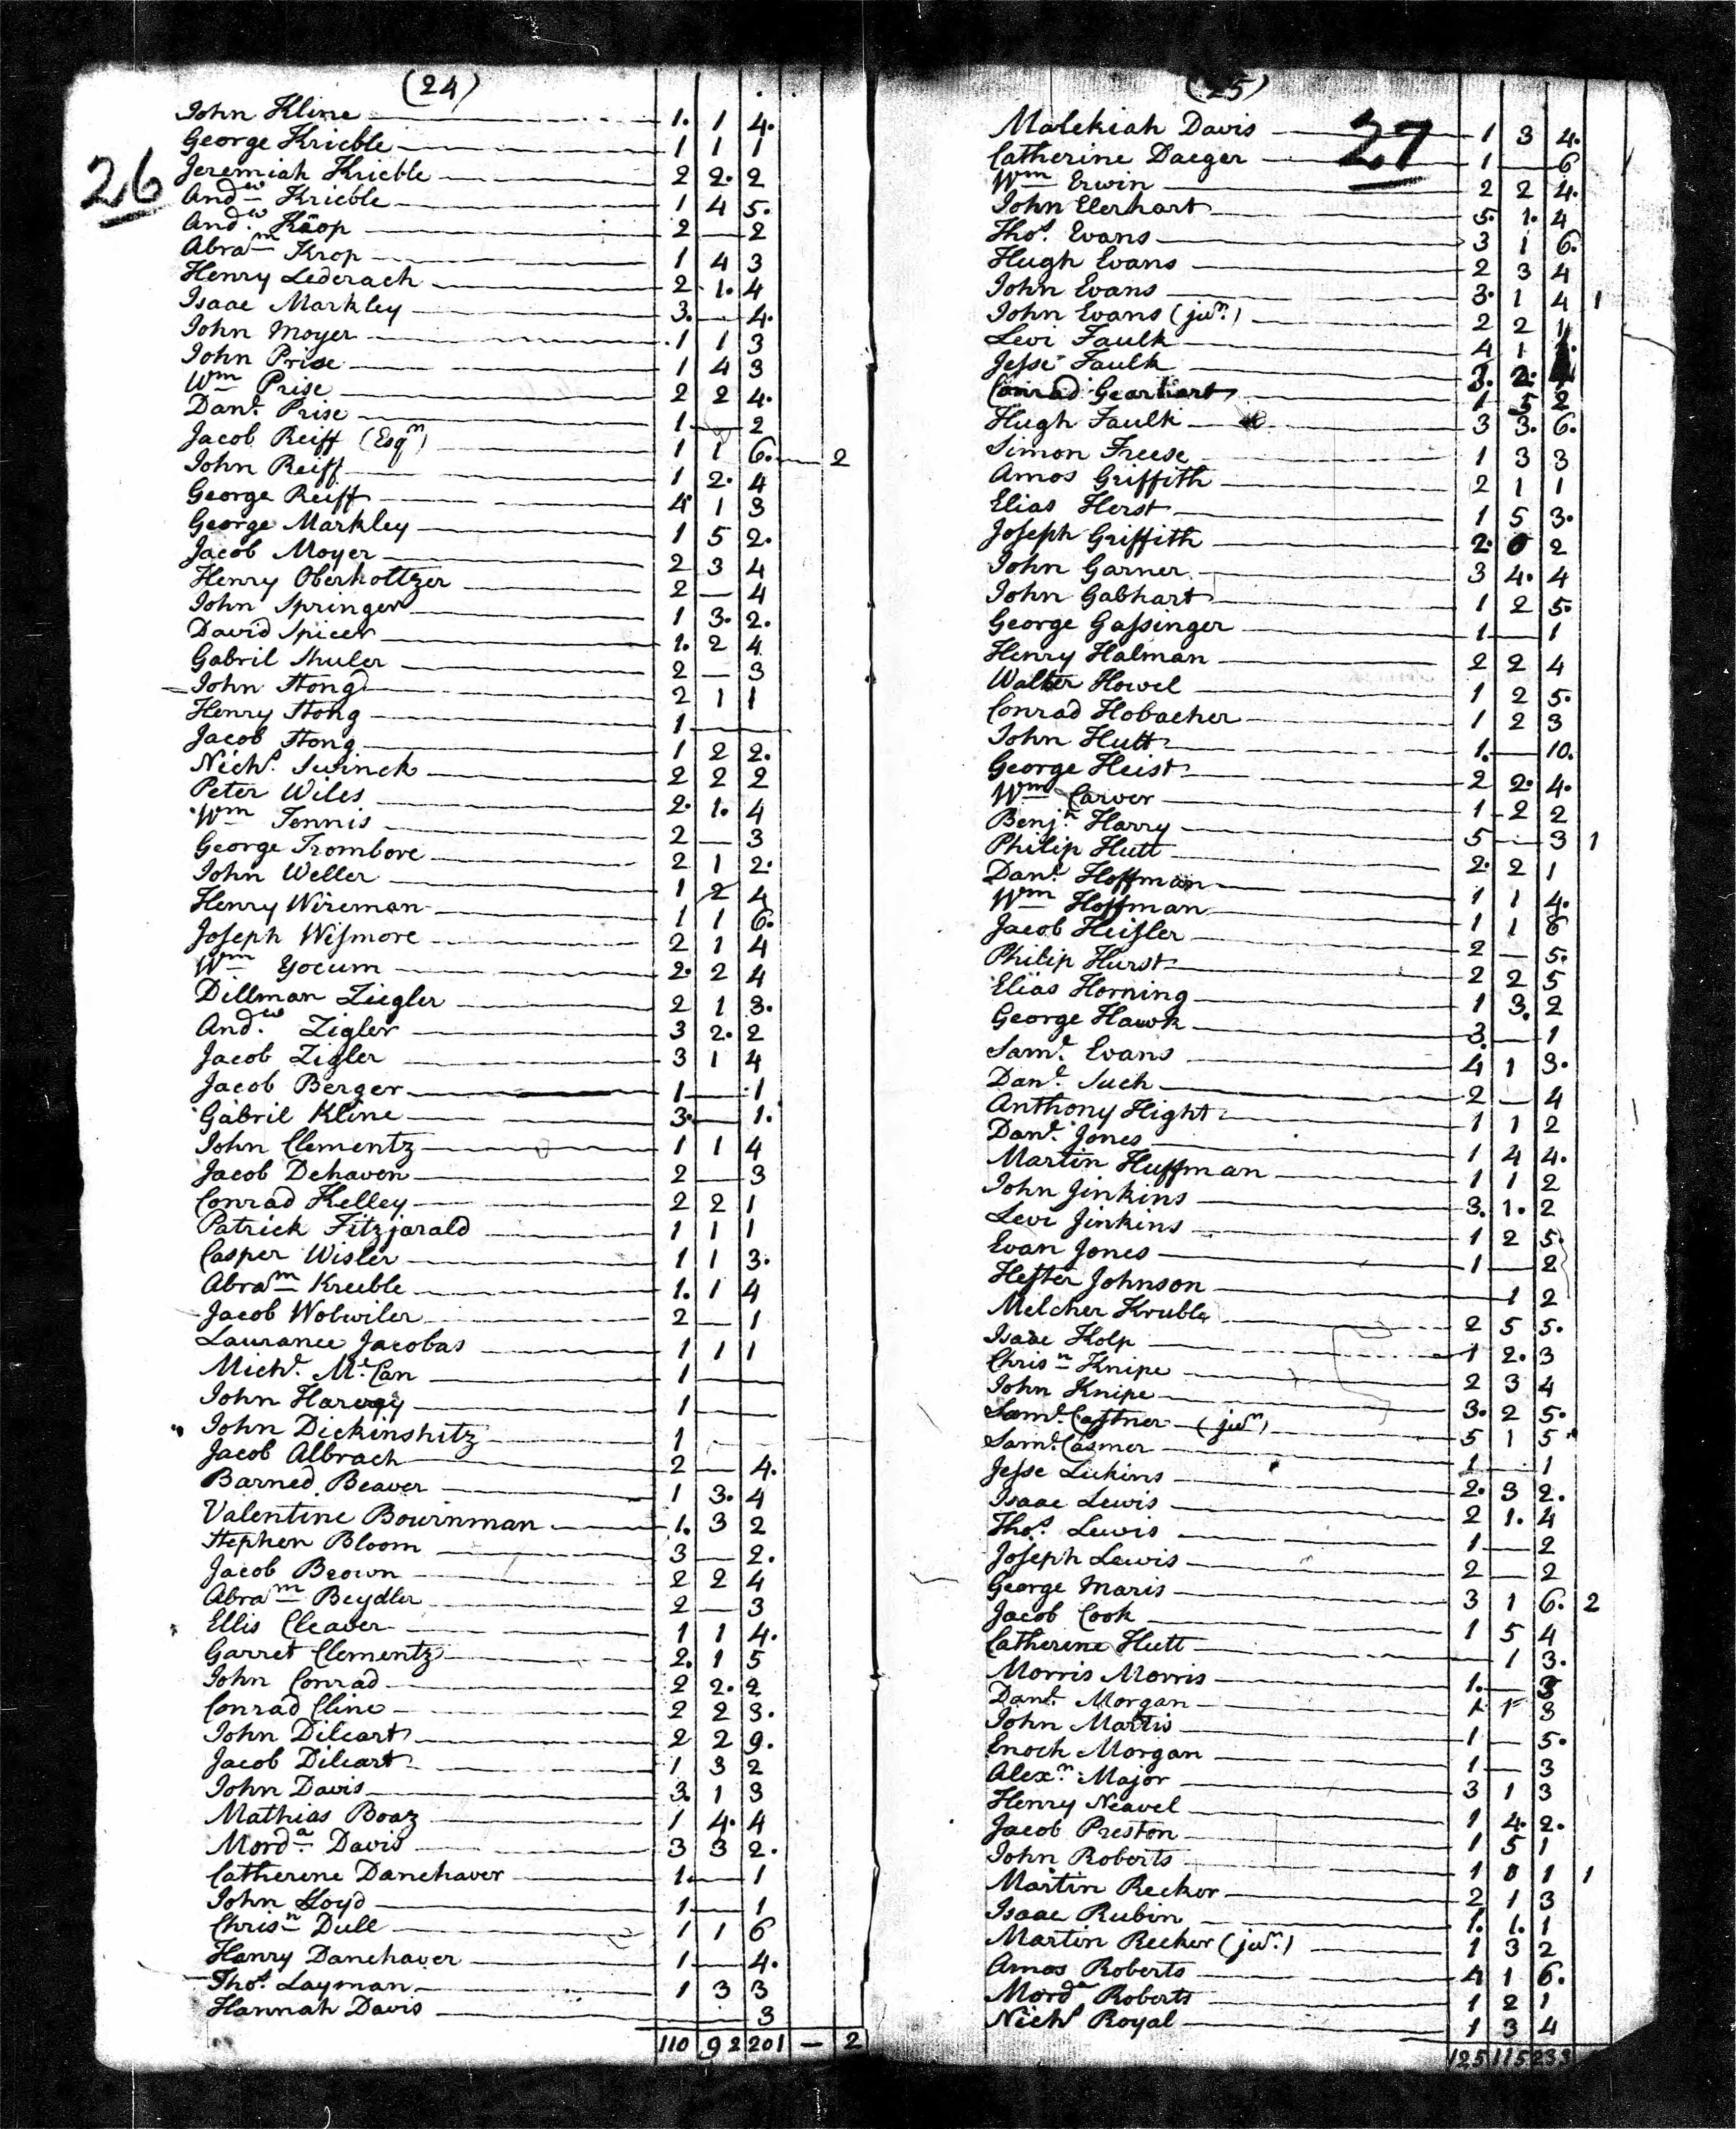 (24)
26
John Kline 1. 1 4.
George Krieble 1 1 1
Jeremiah Krieble 2 2. 2
Andw Krieble 1 4 5.
Andw. Kroop 2 — 2
Abram Krop 1 4 3
Henry Lederach 2 1. 4
Isaac Markley 3. — 4.
John Moyer 1 1 3
John Prise 1 4 3
Wm Prise 2 2 4.
Danl. Prise 1 — 2
Jacob Reiff (Esqr) 1 1 6. — 2
John Reiff 1 2. 4
George Reiff 4 1 3
George Markley 1 5 2.
Jacob Moyer 2 3 4
Henry Oberholtzer 2 — 4
John Springer 1 3. 2.
David Spicer 1. 2 4
Gabril Shuler 2 — 3
John Stong 2 1 1
Henry Stong 1 —
Jacob Stong 1 2 2.
Nichs. Swinck 2 2 2
Peter Wiles 2. 1. 4
Wm Tennis 2 — 3
George Trombore 2 1 2.
John Weller 1 2 4
Henry Wireman 1 1 6.
Joseph Wismore 2 1 4
Wm Yocum 2. 2 4
Dillman Ziegler 2 1 3.
Andw. Zigler 3 2. 2
Jacob Zigler 3 1 4
Jacob Berger 1 — 1
Gabril Kline 3. — 1.
John Clementz 1 1 4
Jacob Dehaven 2 — 3
Conrad Kelley 2 2 1
Patrick Fitzjarald 1 1 1
Casper Wisler 1 1 3.
Abram Kreeble 1. 1 4
Jacob Wolwiler 2 — 1
Laurance Jacobas 1 1 1
Michl. Mc.Can 1 —
John Harvey 1 —
John Dickinshitz 1
Jacob Albrach 2 — 4.
Barned Beaver 1 3. 4
Valentine Bournman 1. 3 2
Stephen Bloom 3 — 2.
Jacob Brown 2 2 4
Abram Beydler 2 — 3
Ellis Cleaver 1 1 4.
Garret Clementz 2. 1 5
John Conrad 2 2. 2
Conrad Cline 2 2 3.
John Dilcart 2 2 9.
Jacob Dilcart 1 3 2
John Davis 3. 1 3
Mathias Boaz 1 4. 4
Morda Davis 3 3 2.
Catherene Danehaver 1. — 1
John Lloyd 1 — 1
Chrisn Dull 1 1 6
Henry Danehaver 1 — 4.
Thos. Layman 1 3 3
Hannah Davis 3
110 92 201 — 2
(25)
27
Malekiah Davis 1 3 4.
Catherine Daeger 1 — 6
Wm Erwin 2 2 4.
John Elerhart 5. 1. 4
Thos. Evans 3 1 6.
Hugh Evans 2 3 4
John Evans 3. 1 4 1
John Evans (jur.) 2 2 1
Levi Faulk 4 1
Jesse Faulk 3. 2.
Conrad Gearhart 1 5 2
Hugh Faulk 3 3. 6.
Simon Freese 1 3 3
Amos Griffith 2 1 1
Elias Herst 1 5 3.
Joseph Griffith 2. 0 2
John Garner 3 4. 4
John Gabhart 1 2 5.
George Gassinger 1 — 1
Henry Halman 2 2 4
Walter Howel 1 2 5.
Conrad Hobacher 1 2 3
John Hutt 1. — 10.
George Heist 2 2. 4.
Wm Carver 1 2 2
Benjn. Harry 5 — 3 1
Philip Hutt 2. 2 1
Danl. Hoffman 1 1 4.
Wm Hoffman 1 1 6
Jacob Heisler 2 — 5.
Philip Hurst 2 2 5
Elias Horning 1 3. 2
George Hawk 3. — 1
Saml. Evans 4 1 3.
Danl. Such 2 — 4
Anthony Hight 1 1 2
Danl. Jones 1 4 4.
Martin Huffman 1 1 2
John Jinkins 3. 1. 2
Levi Jinkins 1 2 5.
Evan Jones 1 — 2
Hester Johnson 1 2
Melcher Kruble 2 5 5.
Isaac Kolp 1 2. 3
Chrisn Knipe 2 3 4
John Knipe 3. 2 5.
Saml. Castner (jur) 5 1 5
Saml. Casmer 1 — 1
Jesse Lickins 2. 3 2.
Isaac Lewis 2 1. 4
Thos. Lewis 1 — 2
Joseph Lewis 2 — 2
George Maris 3 1 6. 2
Jacob Cook 1 5 4
Catherine Hutt — 1 3.
Morris Morris 1. — 3
Danl. Morgan 1 1 3
John Martis 1 — 5.
Enoch Morgan 1 — 3
Alexr. Major 3 1 3
Henry Neavel 1 4. 2.
Jacob Preston 1 5 1
John Roberts 1 0 1 1
Martin Recker 2 1 3
Isaac Rubin 1. 1. 1
Martin Recker (jur.) 1 3 2
Amos Roberts 4 1 6.
Morda Roberts 1 2 1
Nichs Royal 1 3 4
125 115 233